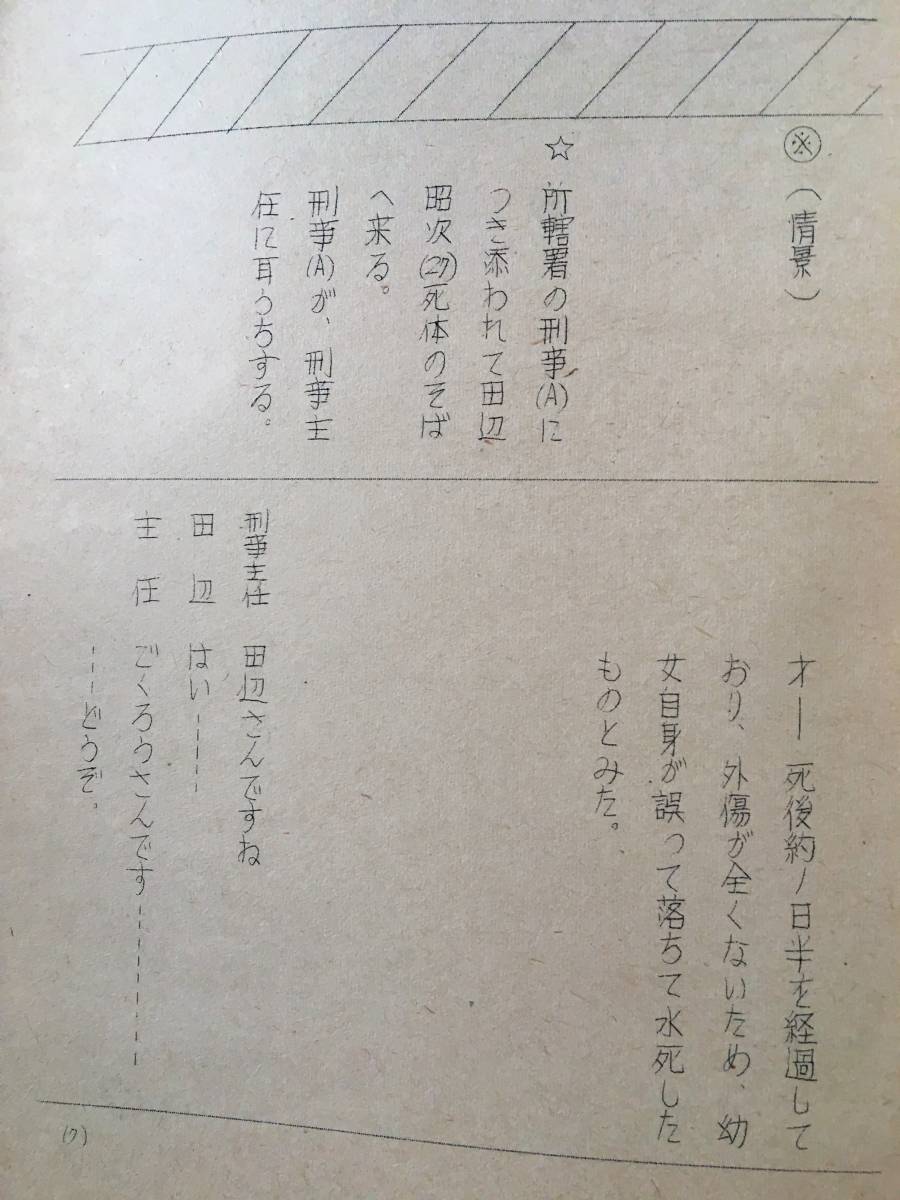 ※（情景）
☆所轄署の刑事(A)に
つき添われて田辺
昭次(27)死体のそば
へ来る。
刑事(A)が、刑事主
任に耳うちする。
オー 死後約1日半を経過して
おり、外傷が全くないため、幼
女自身が誤って落ちて水死した
ものとみた。
刑事主任 田辺さんですね
田辺 はい-----
主任 ごくろうさんです-----------
---どうぞ。
(7)